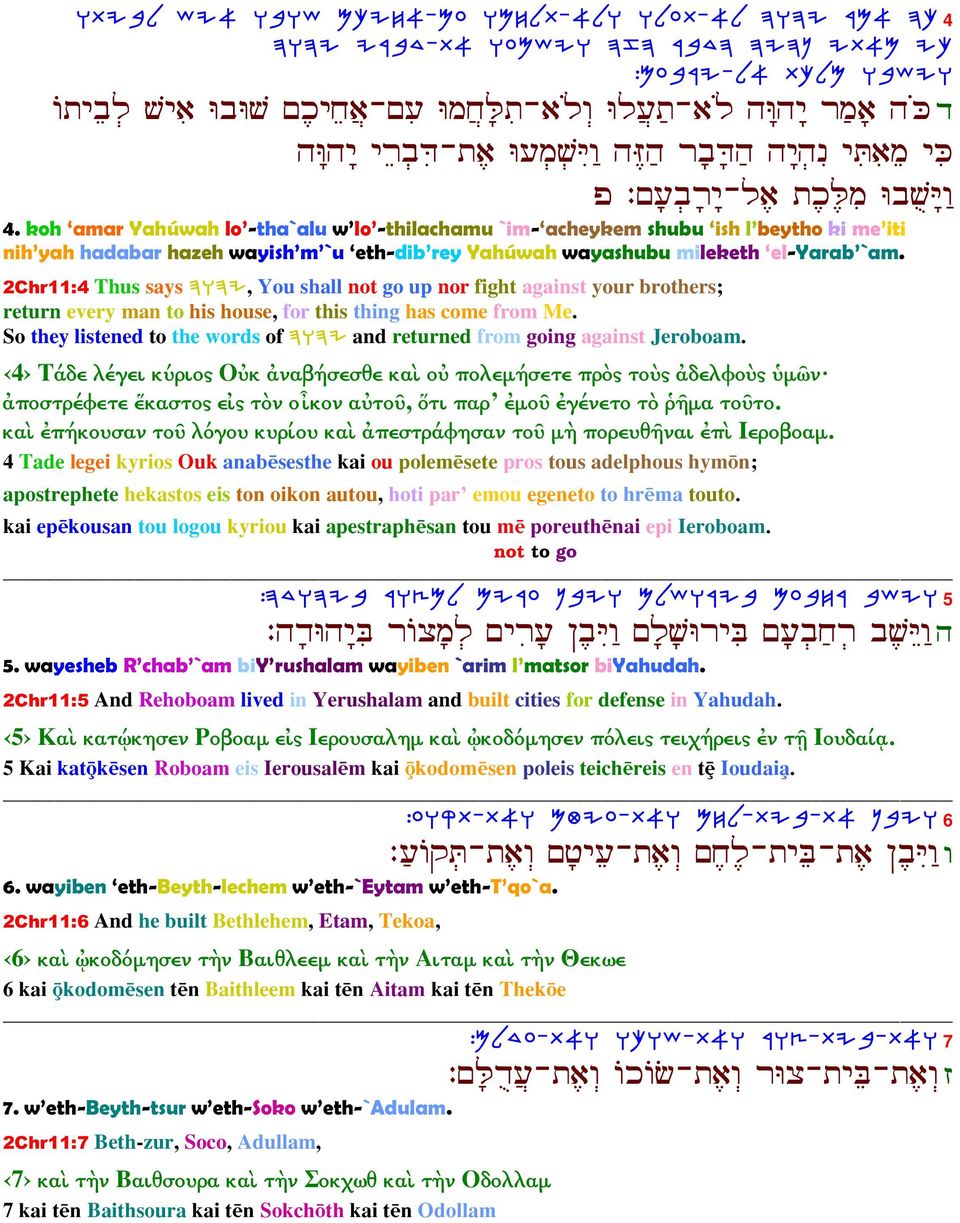 4 𐤊𐤄 𐤀𐤌𐤓 𐤉𐤄𐤅𐤄 𐤋𐤀-𐤕𐤏𐤋𐤅 𐤅𐤋𐤀-𐤕𐤋𐤇𐤌𐤅 𐤏𐤌-𐤀𐤇𐤉𐤊𐤌 𐤔𐤅𐤁𐤅 𐤀𐤉𐤔 𐤋𐤁𐤉𐤕𐤅
𐤊𐤉 𐤌𐤀𐤕𐤉 𐤍𐤄𐤉𐤄 𐤄𐤃𐤁𐤓 𐤄𐤆𐤄 𐤅𐤉𐤔𐤌𐤏𐤅 𐤀𐤕-𐤃𐤁𐤓𐤉 𐤉𐤄𐤅𐤄
𐤅𐤉𐤔𐤁𐤅 𐤌𐤋𐤊𐤕 𐤀𐤋-𐤉𐤓𐤁𐤏𐤌:
ד כֹּה אָמַר יָהוָּה לֹא־תַעֲלוּ וְלֹא־תִלָּחֲמוּ עִם־אֲחֵיכֶם שׁוּבוּ אִישׁ לְבֵיתוֹ
כִּי מֵאִתִּי נִהְיָה הַדָּבָר הַזֶּה וַיִּשְׁמְעוּ אֶת־דִּבְרֵי יָהוָּה
וַיָּשֻׁבוּ מִלֶּכֶת אֶל־יָרָבְעָם׃ פ
4. koh ‘amar Yahúwah lo’-tha`alu w’lo’-thilachamu `im-‘acheykem shubu ‘ish l’beytho ki me’iti
nih’yah hadabar hazeh wayish’m’`u ‘eth-dib’rey Yahúwah wayashubu mileketh ‘el-Yarab’`am.
2Chr11:4 Thus says 𐤉𐤄𐤅𐤄, You shall not go up nor fight against your brothers;
return every man to his house, for this thing has come from Me.
So they listened to the words of 𐤉𐤄𐤅𐤄 and returned from going against Jeroboam.
‹4› Τάδε λέγει κύριος Οὐκ ἀναβήσεσθε καὶ οὐ πολεμήσετε πρὸς τοὺς ἀδελφοὺς ὑμῶν·
ἀποστρέφετε ἕκαστος εἰς τὸν οἶκον αὐτοῦ, ὅτι παρ’ ἐμοῦ ἐγένετο τὸ ῥῆμα τοῦτο.
καὶ ἐπήκουσαν τοῦ λόγου κυρίου καὶ ἀπεστράφησαν τοῦ μὴ πορευθῆναι ἐπὶ Ιεροβοαμ.
4 Tade legei kyrios Ouk anabēsesthe kai ou polemēsete pros tous adelphous hymōn;
apostrephete hekastos eis ton oikon autou, hoti par’ emou egeneto to hrēma touto.
kai epēkousan tou logou kyriou kai apestraphēsan tou mē poreuthēnai epi Ieroboam.
not to go
5 𐤅𐤉𐤔𐤁 𐤓𐤇𐤁𐤏𐤌 𐤁𐤉𐤓𐤅𐤔𐤋𐤌 𐤅𐤉𐤁𐤍 𐤏𐤓𐤉𐤌 𐤋𐤌𐤑𐤅𐤓 𐤁𐤉𐤄𐤅𐤃𐤄:
ה וַיֵּשֶׁב רְחַבְעָם בִּירוּשָׁלָם וַיִּבֶן עָרִים לְמָצוֹר בִּיהוּדָה׃
5. wayesheb R’chab’`am biY’rushalam wayiben `arim l’matsor biYahudah.
2Chr11:5 And Rehoboam lived in Yerushalam and built cities for defense in Yahudah.
‹5› Καὶ κατῴκησεν Ροβοαμ εἰς Ιερουσαλημ καὶ ᾠκοδόμησεν πόλεις τειχήρεις ἐν τῇ Ιουδαίᾳ.
5 Kai katǭkēsen Roboam eis Ierousalēm kai ǭkodomēsen poleis teichēreis en tȩ̄ Ioudaią.
6 𐤅𐤉𐤁𐤍 𐤀𐤕-𐤁𐤉𐤕-𐤋𐤇𐤌 𐤅𐤀𐤕-𐤏𐤉𐤈𐤌 𐤅𐤀𐤕-𐤕𐤒𐤅𐤏:
ו וַיִּבֶן אֶת־בֵּית־לֶחֶם וְאֶת־עֵיטָם וְאֶת־תְּקוֹעַ׃
6. wayiben ‘eth-Beyth-lechem w’eth-`Eytam w’eth-T’qo`a.
2Chr11:6 And he built Bethlehem, Etam, Tekoa,
‹6› καὶ ᾠκοδόμησεν τὴν Βαιθλεεμ καὶ τὴν Αιταμ καὶ τὴν Θεκωε
6 kai ǭkodomēsen tēn Baithleem kai tēn Aitam kai tēn Thekōe
7 𐤅𐤀𐤕-𐤁𐤉𐤕-𐤑𐤅𐤓 𐤅𐤀𐤕-𐤔𐤅𐤊𐤅 𐤅𐤀𐤕-𐤏𐤃𐤋𐤌:
ז וְאֶת־בֵּית־צוּר וְאֶת־שׂוֹכוֹ וְאֶת־עֲדֻלָּם׃
7. w’eth-Beyth-tsur w’eth-Soko w’eth-`Adulam.
2Chr11:7 Beth-zur, Soco, Adullam,
‹7› καὶ τὴν Βαιθσουρα καὶ τὴν Σοκχωθ καὶ τὴν Οδολλαμ
7 kai tēn Baithsoura kai tēn Sokchōth kai tēn Odollam